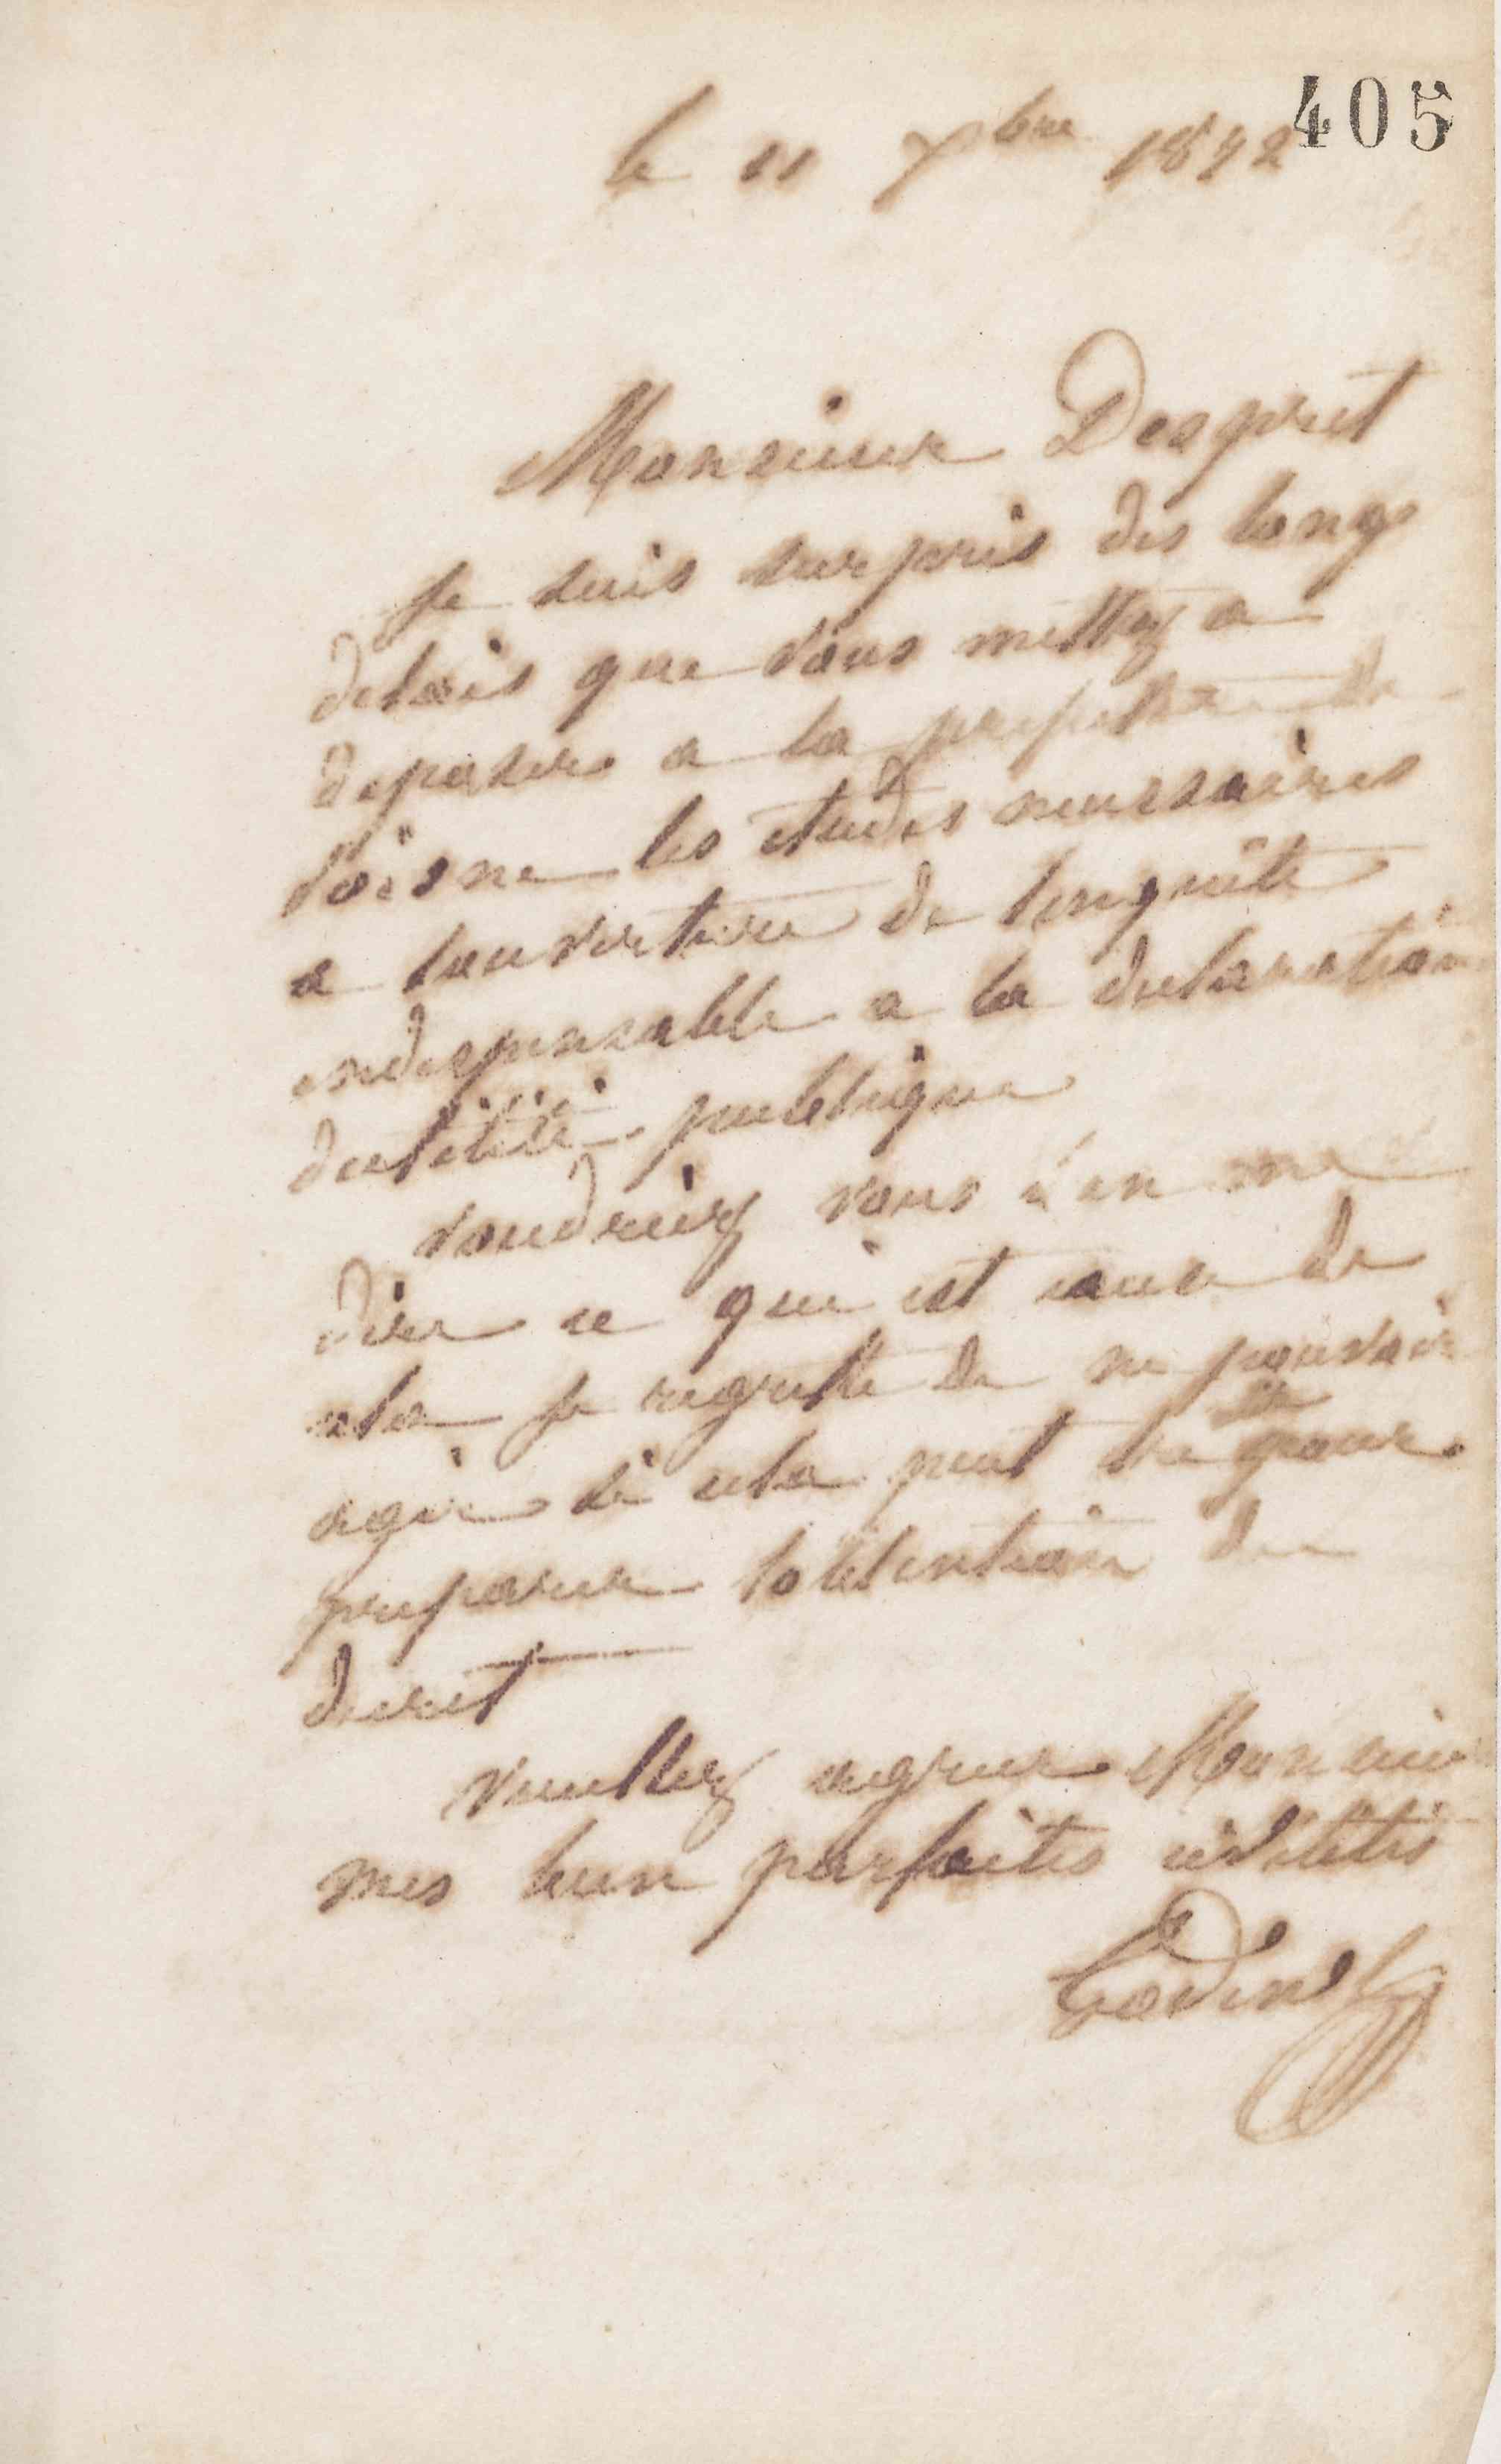 405
le 11 Xbre 1872
Monsieur Despret
Je suis surpris des longs
delais que vous mettez a
deposer a la prefecture de
l'aisne les etudes necessaires
a louverture de lenquête
indispensable a la declaration
dutilité publique
voudriez vous me
dire ce qui est cause de
cela je regrette de ne pouvoir
agir si cela peut être pour
preparer lobtention du
decret
veuillez agreer Monsieur
mes bien parfaites civilités
Godin